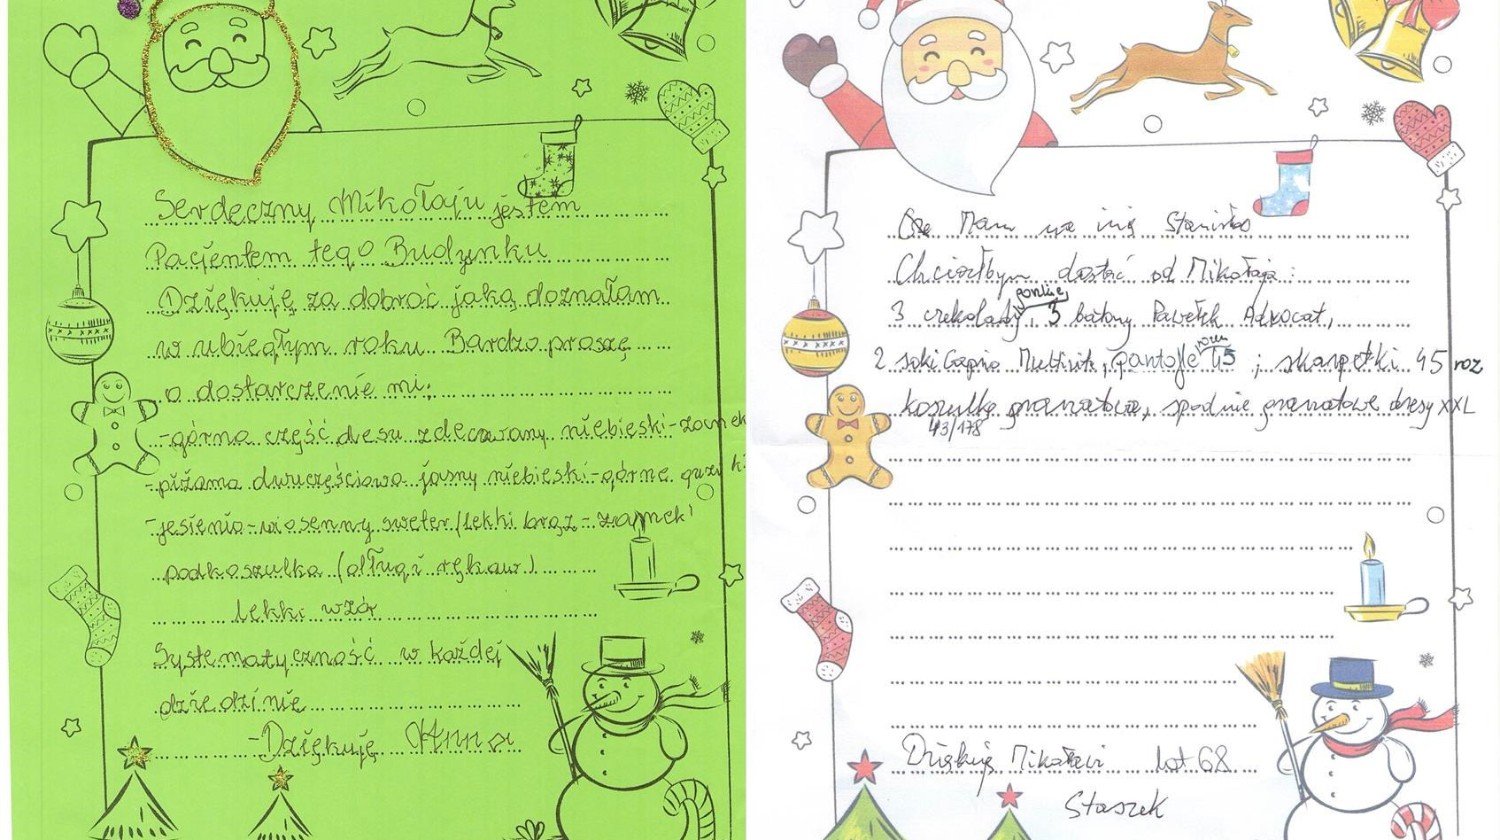 Serdeczny Mikołaju jestem
Pacjentem tego Budynku
Dziękuję za dobroć jaką doznałam
w ubiegłym roku Bardzo proszę
o dostarczenie mi:
- górna część desu zdecwany niebieski-zamek
- piżama dwuczęściowa jasny niebieski-górne guziki
- jesienio-wiosenny sweter/lekki brąz - zamek
podkoszulka (długi rękaw)
lekki wzór
Systematyczność w każdej
dziedzinie
- Dziękuję Anna
Mam na imię Stanisław
Chciałbym dostać od Mikołaja:
3 czekolady gorzkie, 3 batony Pawełek Advocat,
2 soki Caprio Multiwit, pantofle rozm 45; skarpetki 45 roz
koszulkę granatową, spodnie granatowe dresy XXL
43/178
Dziękuję Mikołaj lat 68
Staszek